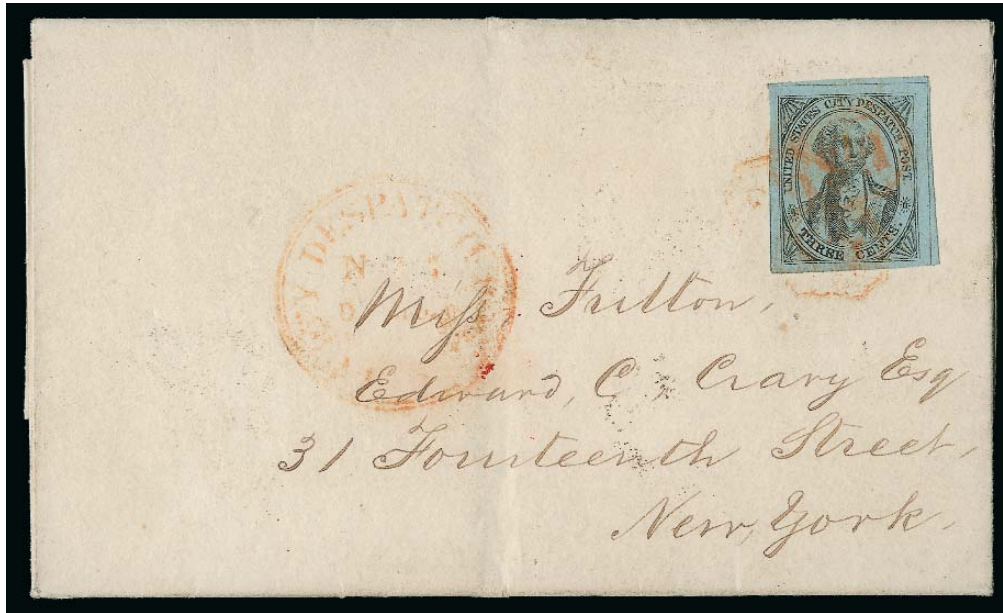 UNITED STATES CITY DESPATCH POST.
THREE CENTS.
CITY DESPATCH
N
Miss Fritton,
Edward, C, Crary Esq
31 Fourteenth Street,
New, York.